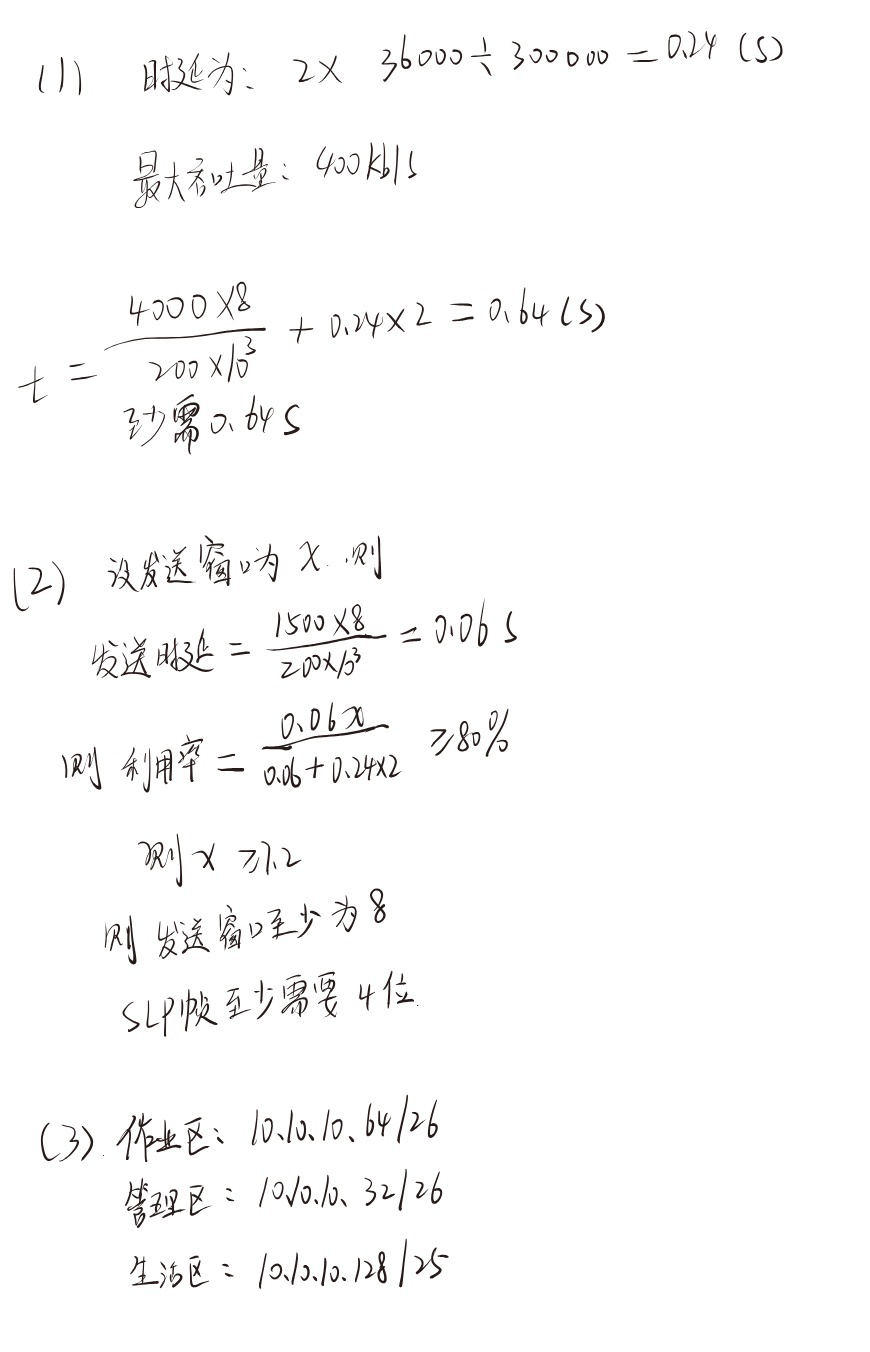 (1) 时延为: 2× 36000÷300000=0.24 (S)
最大吞吐量: 400kb/s
t = \frac{4000×8}{200×10^3} + 0.24×2 = 0.64(S)
至少需0.64S
(2) 设发送窗口为 x. 则
发送时延 = \frac{1500×8}{200×10^3} = 0.06 S
则 利用率 = \frac{0.06x}{0.06+0.24×2} ≥80%
则 x ≥7.2
则 发送窗口至少为8
SLP帧至少需要4位.
(3). 作业区: 10.10.10.64/26
管理区: 10.10.10.32/26
生活区: 10.10.10.128/25